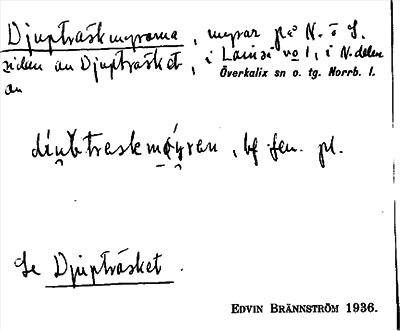 Djupträskmyrarna, myrar på N. o S.
sidan av Djupträsket, i Lansån vo 1, i N. delen
Överkalix sn o. tg. Norrb. l.
av
díu̯btraskmǫ́yran, bf fem. pl.
Se Djupträsket.
EDVIN BRÄNNSTRÖM 1936.